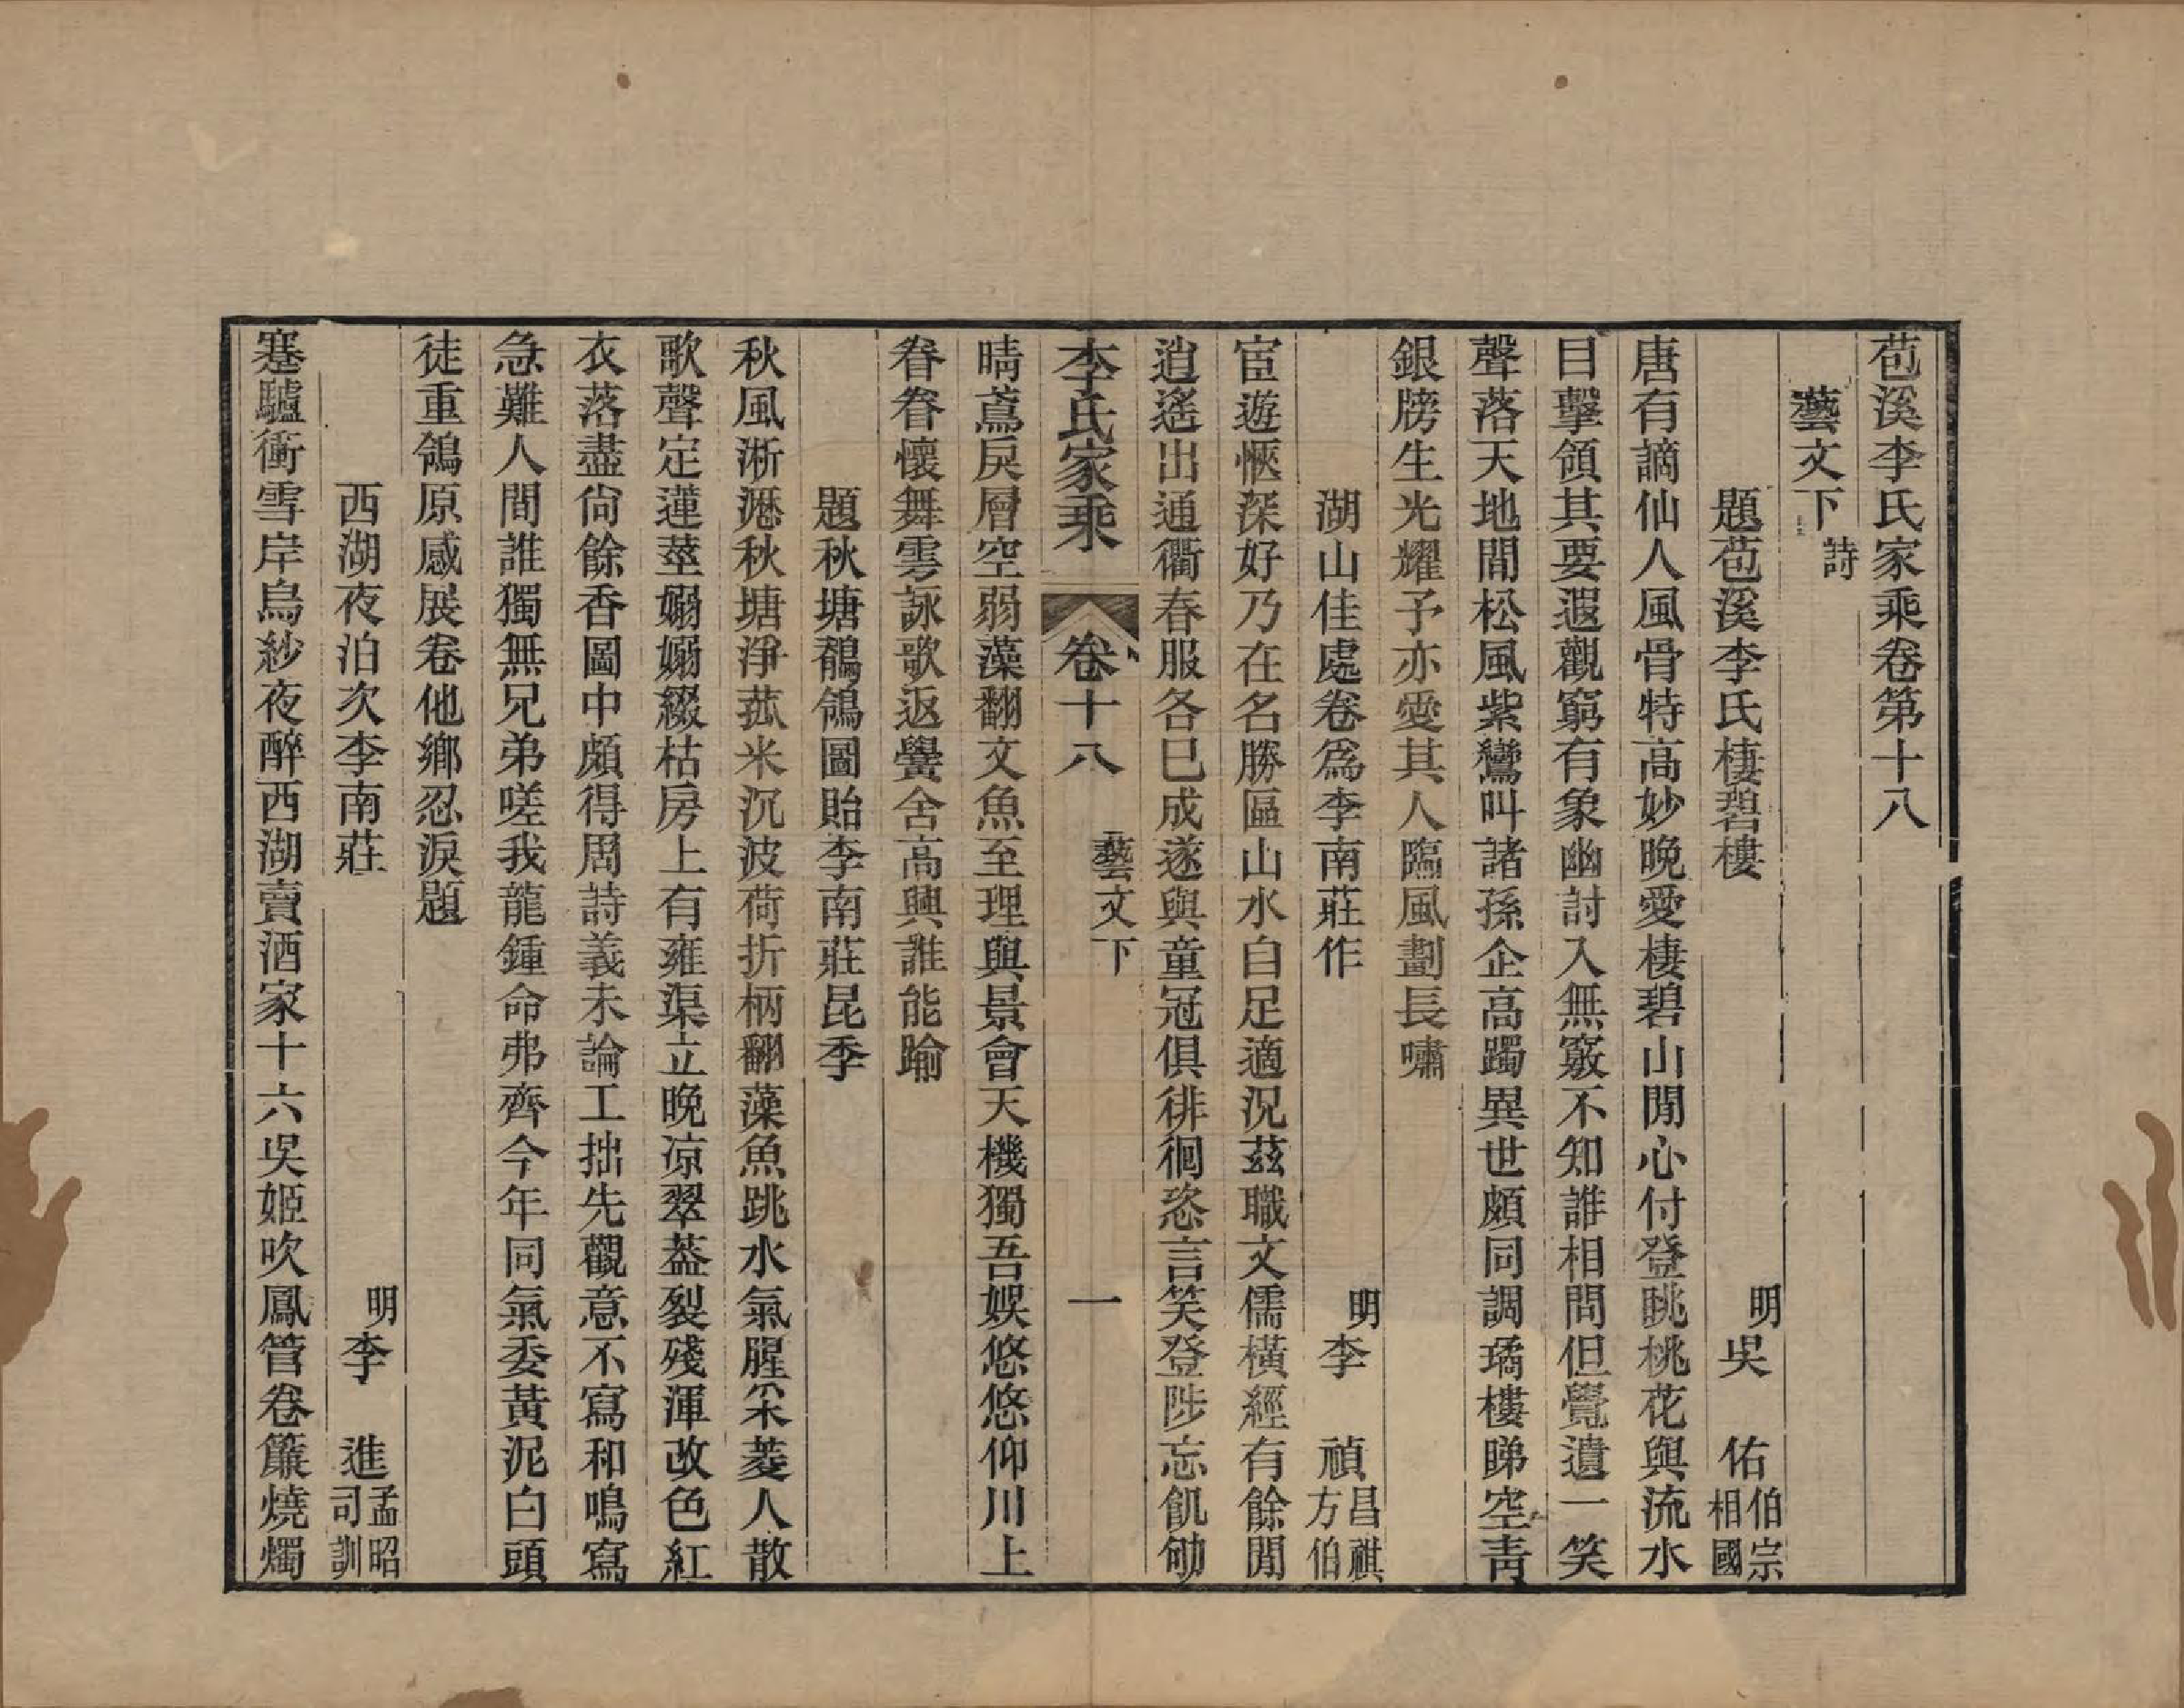 苞溪李氏家乘卷第十八
藝文下 詩
題苞溪李氏棲碧樓 明 吳 佑 伯宗 相國
唐有謫仙人風骨特高妙晚愛棲碧山閒心付登眺桃花與流水
目擊領其要遐觀窮有象幽討入無竅不知誰相問但覺遺一笑
聲落天地間松風紫鸞叫諸孫企高躅異世頗同調璚樓睇空青
銀牓生光耀予亦愛其人臨風劃長嘯
湖山佳處卷爲李南莊作 明 李 禎 昌祺 方伯
宦遊愜深好乃在名勝區山水自足適況茲職文儒橫經有餘閒
逍遙出通衢春服各已成遂與童冠俱徘徊恣言笑登陟忘飢劬
李氏家乘 卷十八 藝文下 一
晴鳶戾層空弱藻翻文魚至理與景會天機獨吾娛悠悠仰川上
眷眷懷舞雩詠歌返黌舍高興誰能踰
題秋塘鶺鴒圖貽李南莊昆季
秋風淅瀝秋塘淨菰米沉波荷折柄翻藻魚跳水氣腥罙菱人散
歌聲定蓮莖嫋嫋綴枯房上有雍渠立晚凉翠葢裂殘渾改色紅
衣落盡尙餘香圖中頗得周詩義未論工拙先觀意不寫和鳴寫
急難人間誰獨無兄弟嗟我龍鍾命弗齊今年同氣委黃泥白頭
徒重鴒原感展卷他鄉忍淚題
西湖夜泊次李南莊 明 李 進 孟昭 司訓
蹇驢衝雪岸烏紗夜醉西湖賣酒家十六吳姬吹鳳管卷簾燒燭